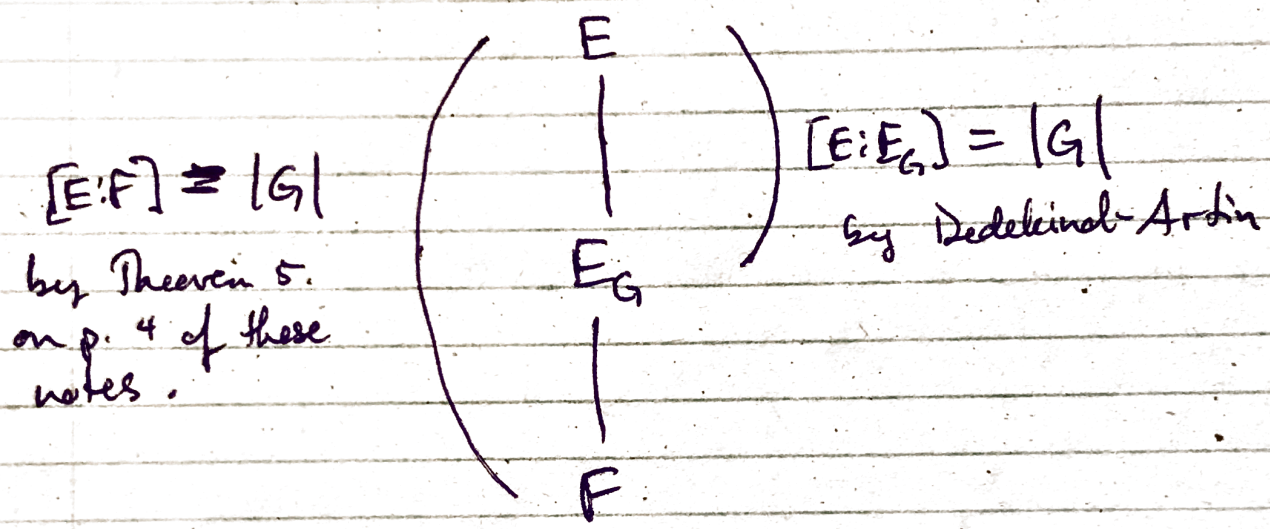 E
[E:F] = |G|
by Theorem 5.
on p. 4 of these
notes.
[E:E_G] = |G|
by Dedekind-Artin
E_G
F